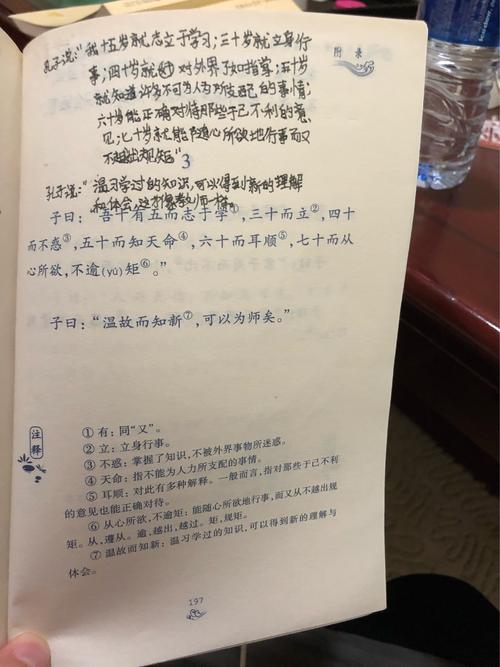 附录
孔子说："我十五岁就志立于学习；三十岁就立身行
事；四十岁就 对外界了如指掌；五十岁
就知道许多不可为人力所支配的事情；
六十岁能正确对待那些于己不利的意
见；七十岁就能随心所欲地行事而又
不越出规矩。"
3
孔子说："温习学过的知识，可以得到新的理解
和体会，这才像教师一样。
子曰："吾十有五而志于学①，三十而立②，四十
而不惑③，五十而知天命④，六十而耳顺⑤，七十而从
心所欲，不逾(yú)矩⑥。"
子曰："温故而知新⑦，可以为师矣。"
注释
①有：同"又"。
②立：立身行事。
③不惑：掌握了知识，不被外界事物所迷惑。
④天命：指不能为人力所支配的事情。
⑤耳顺：对此有多种解释。一般而言，指对那些于己不利
的意见也能正确对待。
⑥从心所欲，不逾矩：能随心所欲地行事，而又从不越出规
矩。从，遵从。逾，越出，越过。矩，规矩。
⑦温故而知新：温习学过的知识，可以得到新的理解与
体会。
197